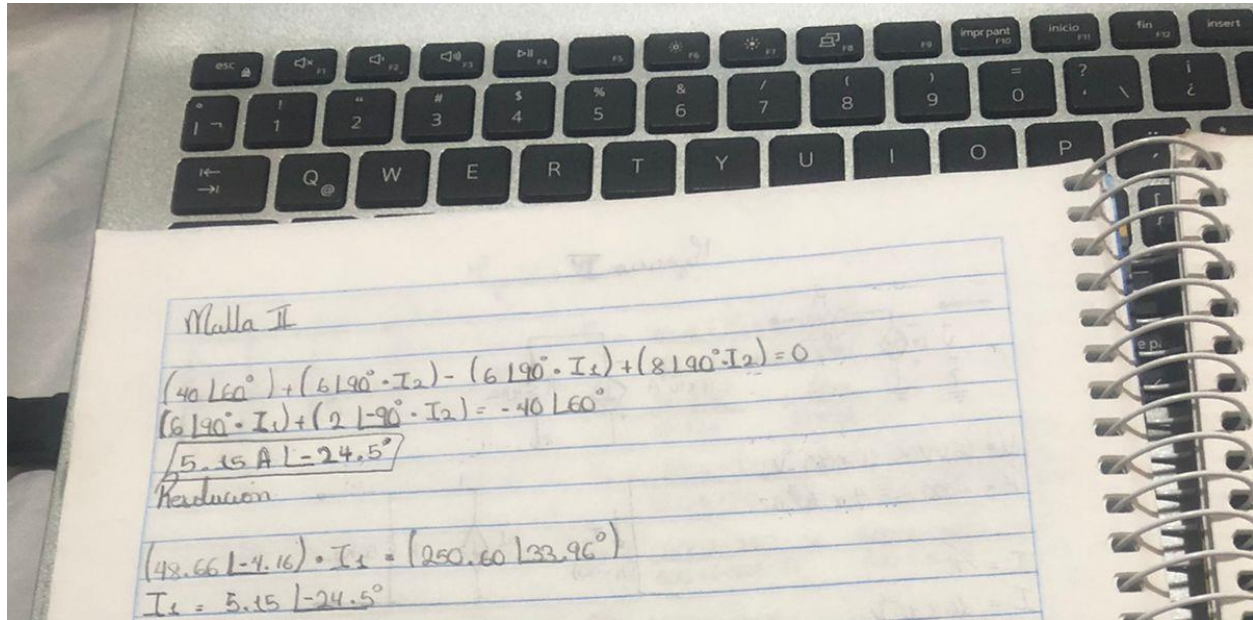 esc F1 F2 F3 F4 F5 F6 F7 F8 F9 impr pant F10 inicio F11 fin F12 insert
° | ¬ ! 1 " 2 # 3 $ 4 % 5 & 6 / 7 ( 8 ) 9 = 0 ? ' \ ¡ ¿
Q @ W E R T Y U I O P
Malla II
(40 ∟60°) + (6∟90° · I2) - (6∟90° · I1) + (8∟90° · I2) = 0
(6∟90° · I1) + (2 ∟-90° · I2) = -40 ∟60°
5.15 A ∟-24.5°
Resolucion
(48.66 ∟-4.16) · I1 = (250.60 ∟33.96°)
I1 = 5.15 ∟-24.5°